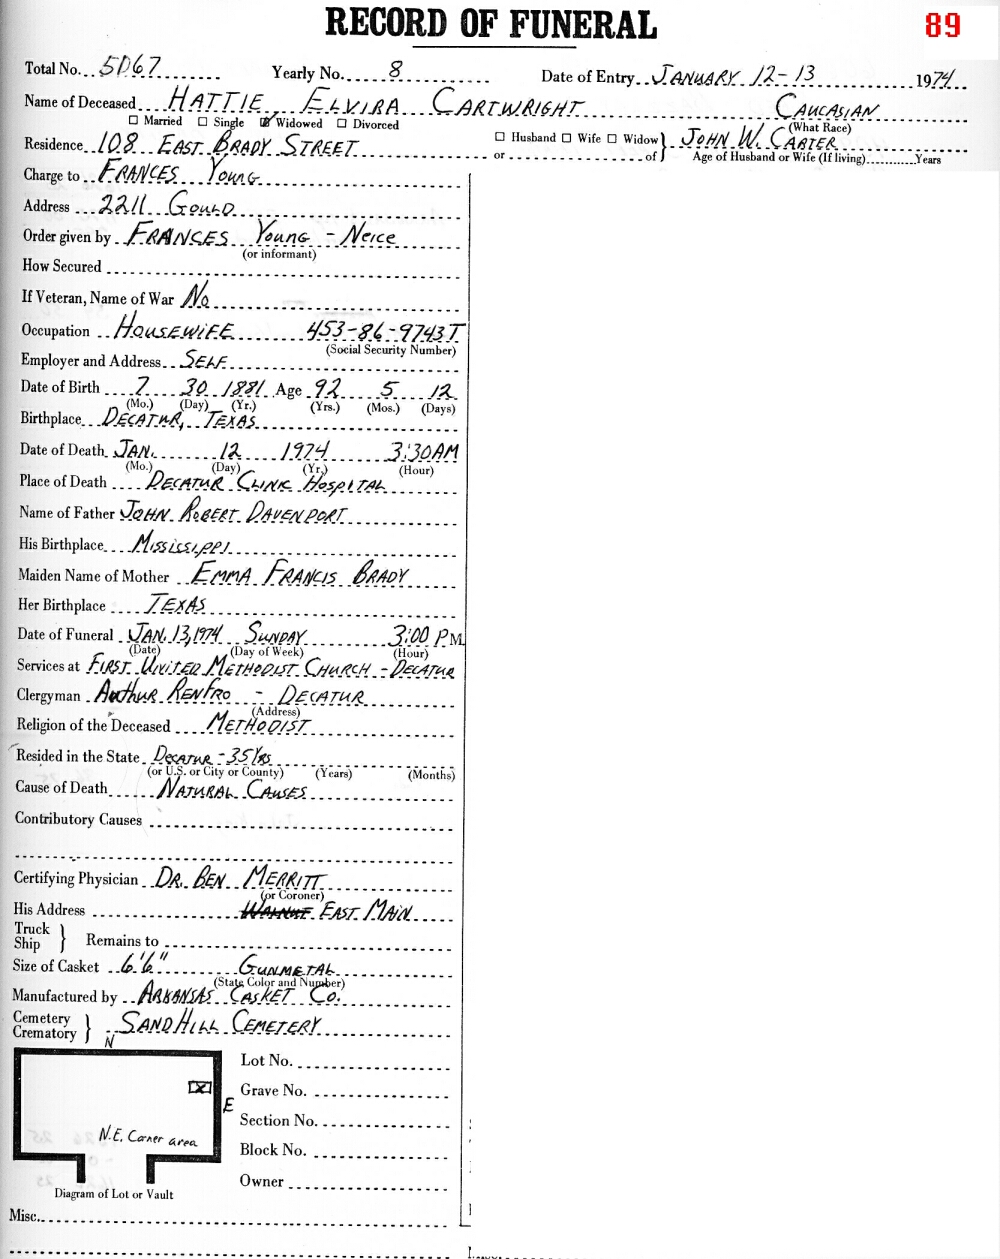 RECORD OF FUNERAL 89
Total No. 5D67 Yearly No. 8 Date of Entry JANUARY 12-13 1974
Name of Deceased HATTIE ELVIRA CARTWRIGHT CAUCASIAN
☐ Married ☐ Single ☑ Widowed ☐ Divorced (What Race)
Residence 108 EAST BRADY STREET ☐ Husband ☐ Wife ☐ Widow } JOHN W. CARTER
or of } Age of Husband or Wife (If living) Years
Charge to FRANCES YOUNG
Address 2211 GOULD
Order given by FRANCES YOUNG - NEICE
(or informant)
How Secured
If Veteran, Name of War NO
Occupation HOUSEWIFE 453-86-9743T
(Social Security Number)
Employer and Address SELF
Date of Birth 7 30 1881 Age 92 5 12
(Mo.) (Day) (Yr.) (Yrs.) (Mos.) (Days)
Birthplace DECATUR, TEXAS
Date of Death JAN. 12 1974 3:30AM
(Mo.) (Day) (Yr.) (Hour)
Place of Death DECATUR CLINIC HOSPITAL
Name of Father JOHN ROBERT DAVENPORT
His Birthplace MISSISSIPPI
Maiden Name of Mother EMMA FRANCIS BRADY
Her Birthplace TEXAS
Date of Funeral JAN. 13, 1974 SUNDAY 3:00 P M.
(Date) (Day of Week) (Hour)
Services at FIRST UNITED METHODIST CHURCH - DECATUR
Clergyman ARTHUR RENFRO - DECATUR
(Address)
Religion of the Deceased METHODIST
Resided in the State DECATUR - 35 YRS
(or U.S. or City or County) (Years) (Months)
Cause of Death NATURAL CAUSES
Contributory Causes
Certifying Physician DR. BEN MERRITT
(or Coroner)
His Address WALNUT EAST MAIN
Truck
Ship } Remains to
Size of Casket 6'6" GUNMETAL
(State Color and Number)
Manufactured by ARKANSAS CASKET CO.
Cemetery
Crematory } SAND HILL CEMETERY
N
Lot No.
Grave No.
E
Section No.
N.E. Corner area
Block No.
Owner
Diagram of Lot or Vault
Misc.